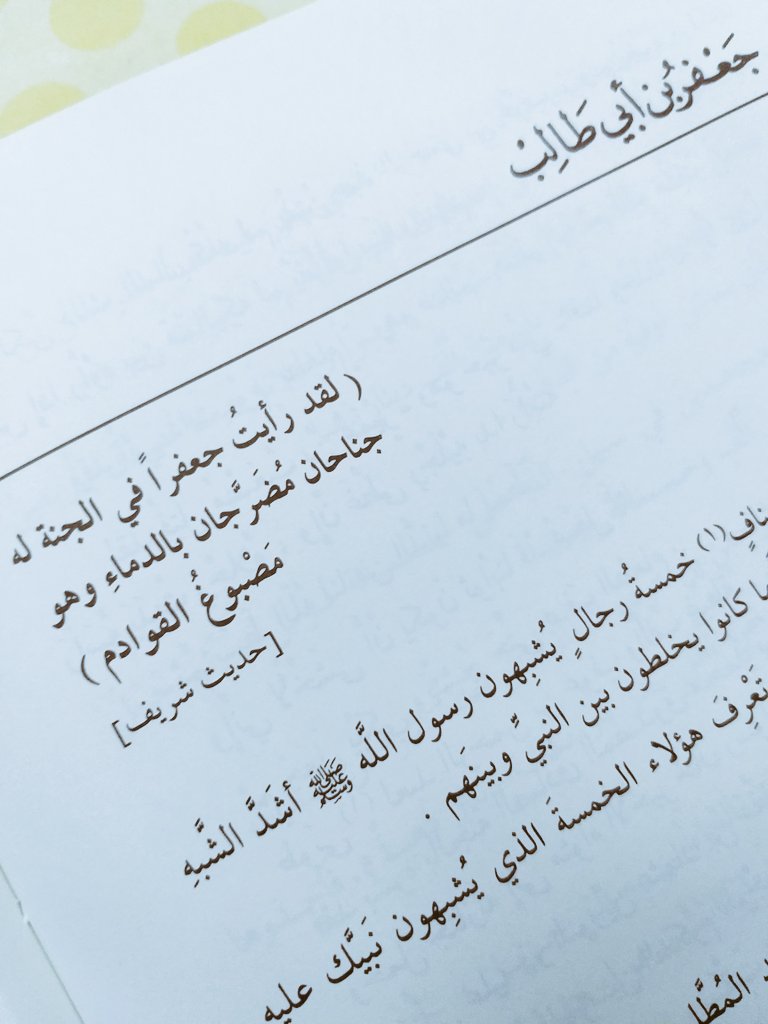 جَعْفر بْن أبي طَالِبْ
( لقد رأيتُ جعفراً في الجنة له
جناحان مُضَرَّجان بالدماءِ وهو
مَصْبوغُ القوادم )
[حديث شريف]
(١) خمسةُ رجالٍ يُشبِهون رسول اللَّه ﷺ أشَدَّ الشَّبهِ
كانوا يخلطون بين النبيِّ وبينهَم .
تَعْرِفَ هؤلاء الخمسةَ الذي يُشبِهون نَبيَّك عليه